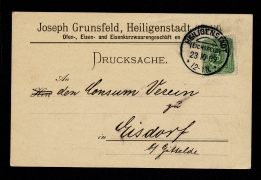 Joseph Grunsfeld, Heiligenstadt
Ofen-, Eisen- und Eisenkurzwaarengeschäft en
HEILIGENSTADT
(EICHSFELD)
12-1N
DRUCKSACHE.
An
den Consum Verein
zu
in Eisdorf
b/ Gittelde